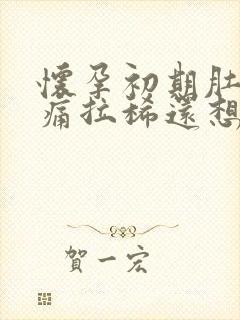 懷孕初期肚
痛拉稀還想
賀一宏